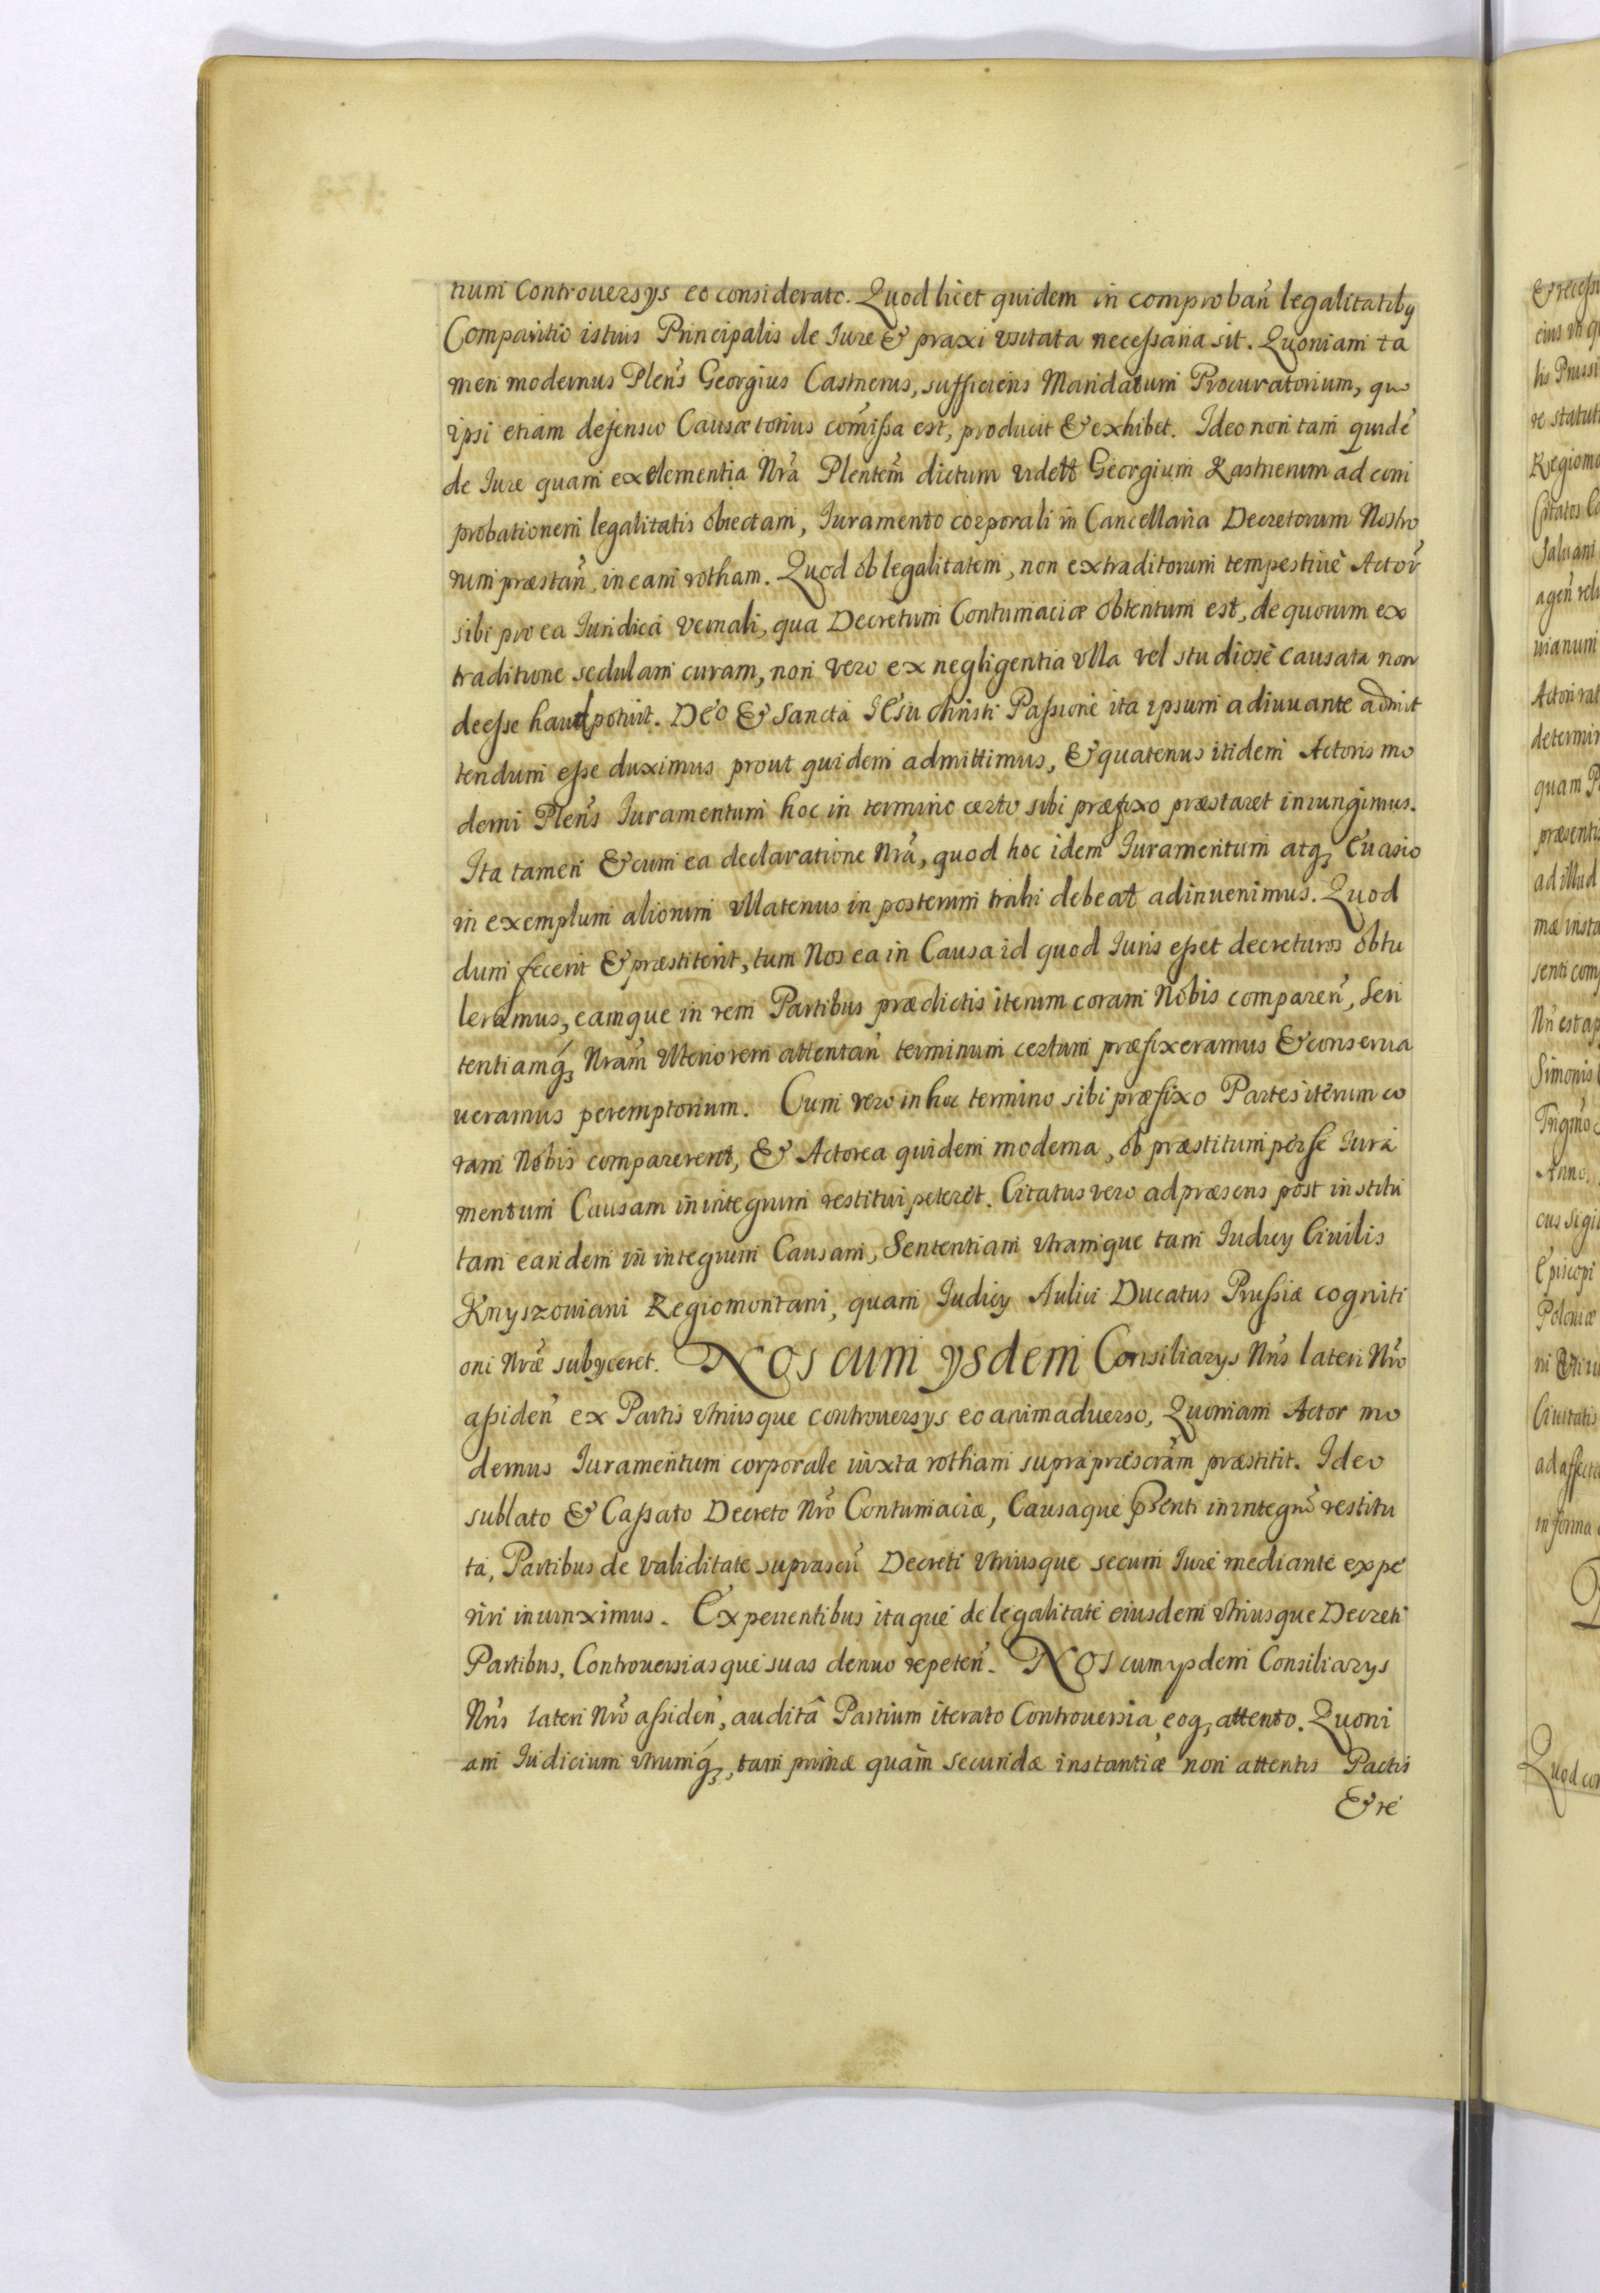 tium Controuersys eo considerato. Quod licet quidem in comproban̄ legalitatibꝫ
Comparitio istius Principalis de Iure & praxi vsitata necessaria sit. Quoniam ta
men modernus Plen̄s Georgius Castnerus, sufficiens Mandatum Procuratorium, quo
ipsi etiam defensio Causæ totius com̄issa est, producit & exhibet. Ideo non tam quidē
de Iure quam ex clementia Nrā Plentem̄ dictum videlt Georgium Kastnerum ad com
probationem legalitatis obiectam, Iuramento corporali in Cancellaria Decretorum Nostro
rum præstan̄, in eam rotham. Quod ob legalitatem, non extraditorum tempestiuè Actor̄
sibi pro ea Iuridica vernali, qua Decretum Contumaciæ obtentum est, de quorum ex
traditione sedulam curam, non vero ex negligentia vlla vel studiosè causata non
deesse haud potuit. DEO & Sancta IESu Christi Passione ita ipsum adiuuante admit
tendum esse duximus prout quidem admittimus, & quatenus itidem Actoris mo
derni Plen̄s Iuramentum hoc in termino certo sibi præfixo præstaret iniungimus.
Ita tamen & cum ea declaratione Nrā, quod hoc idem Iuramentum atqꝫ Euasio
in exemplum aliorum vllatenus in posterum trahi debeat adinuenimus. Quod
dum fecerit & præstiterit, tum Nos ea in Causa id quod Iuris esset decreturos obtu
leramus, eamque in rem Partibus prædictis iterum coram Nobis comparen̄, Sen
tentiamqꝫ Nram̄ vlteriorem attentan̄ terminum certum præfixeramus & conserua
ueramus peremptorium. Cum vero in hoc termino sibi præfixo Partes iterum co
ram Nobis comparerent, & Actorea quidem moderna, ob præstitum per se Iura
mentum Causam in integrum restitui peteret. Citatus vero ad præsens post institu
tam eandem in integrum Causam, Sententiam vtramque tam Iudicy Ciuilis
Knyszouiani Regiomontani, quam Iudicy Aulici Ducatus Prussiæ cogniti
oni Nrǣ subyceret. NOS cum ysdem Consiliarys Nrīs lateri Nrō
assiden̄ ex Partis vtriusque controuersys eo animaduerso, Quoniam Actor mo
dernus Iuramentum corporale iuxta rotham supra præscram̄ præstitit. Ideo
sublato & Cassato Decreto Nrō Contumaciæ, Causaque pñti in integrū restitu
ta, Partibus de validitate suprascri Decreti vtriusque secum Iure mediante expe
riri iniunximus. Experientibus itaque de legalitate eiusdem vtriusque Decreti
Partibus, Controuersiasque suas denuo repeten̄. NOS cum ysdem Consiliarys
Nrīs lateri Nrō assiden̄, auditâ Partium iterato Controuersia eoqꝫ attento. Quoni
am Iudicium vtrumqꝫ, tam primæ quàm secundæ instantiæ non attentis Pactis
& re